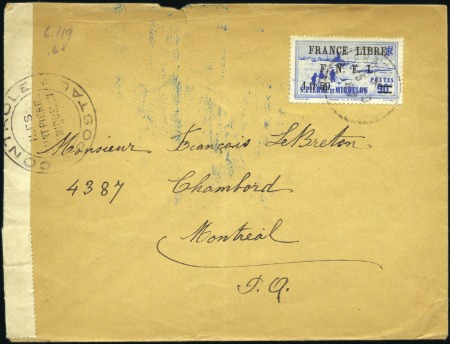 6.119
FRANCE LIBRE
F. N. F. L.
POSTES
ST PIERRE ET MIQUELON
CONTROLE POSTAL
Monsieur François LeBreton
4387 Chambord
Montreal
P.Q.